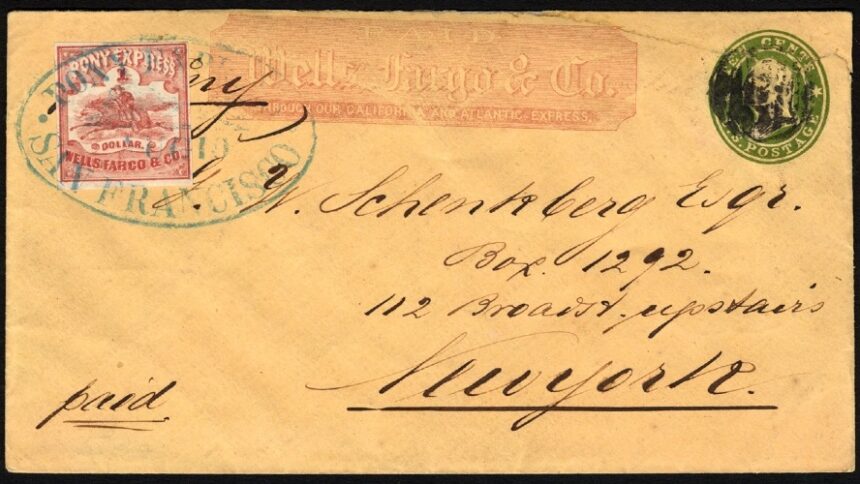 PAID
Wells Fargo & Co.
THROUGH OUR CALIFORNIA AND ATLANTIC EXPRESS.
PONY EXPRESS
1
DOLLAR
WELLS FARGO & CO.
PONY
SAN FRANCISCO
TEN CENTS
U.S. POSTAGE
W. Schenkberg Esqr.
Box. 1292.
112 Broadst. upstairs
New york.
paid